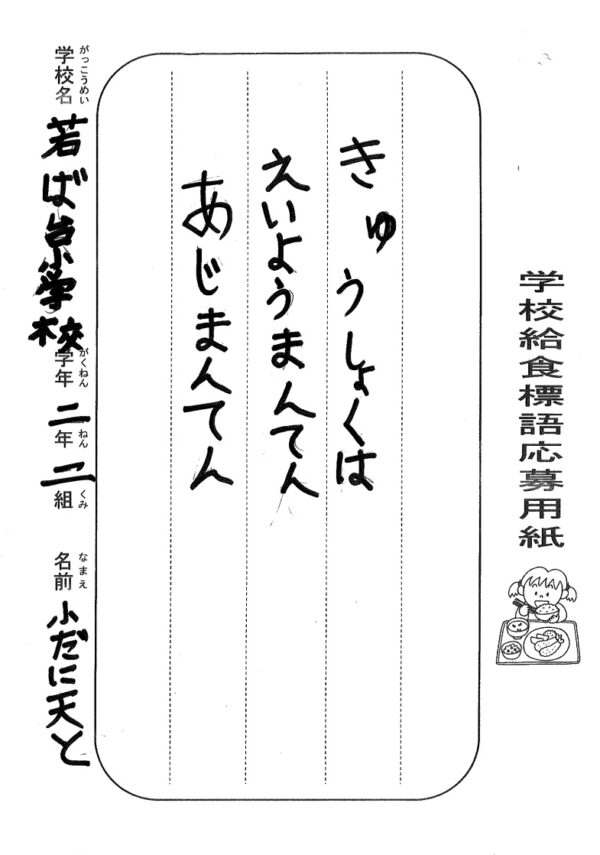 学校給食標語応募用紙
きゅうしょくは
えいようまんてん
あじまんてん
学校名 がっこうめい 若ば台小学校 学年 がくねん 二年 ねん 二組 くみ 名前 なまえ 小だに天と